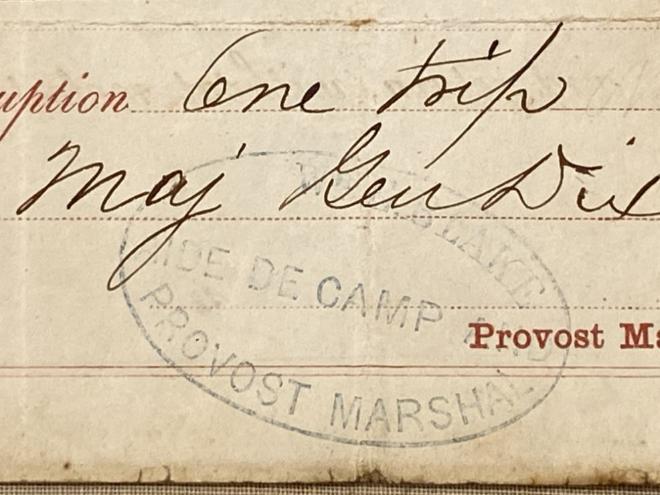 uption One trip
Maj Gen Dix
BLAKE
AIDE DE CAMP AND
Provost Ma
PROVOST MARSHAL